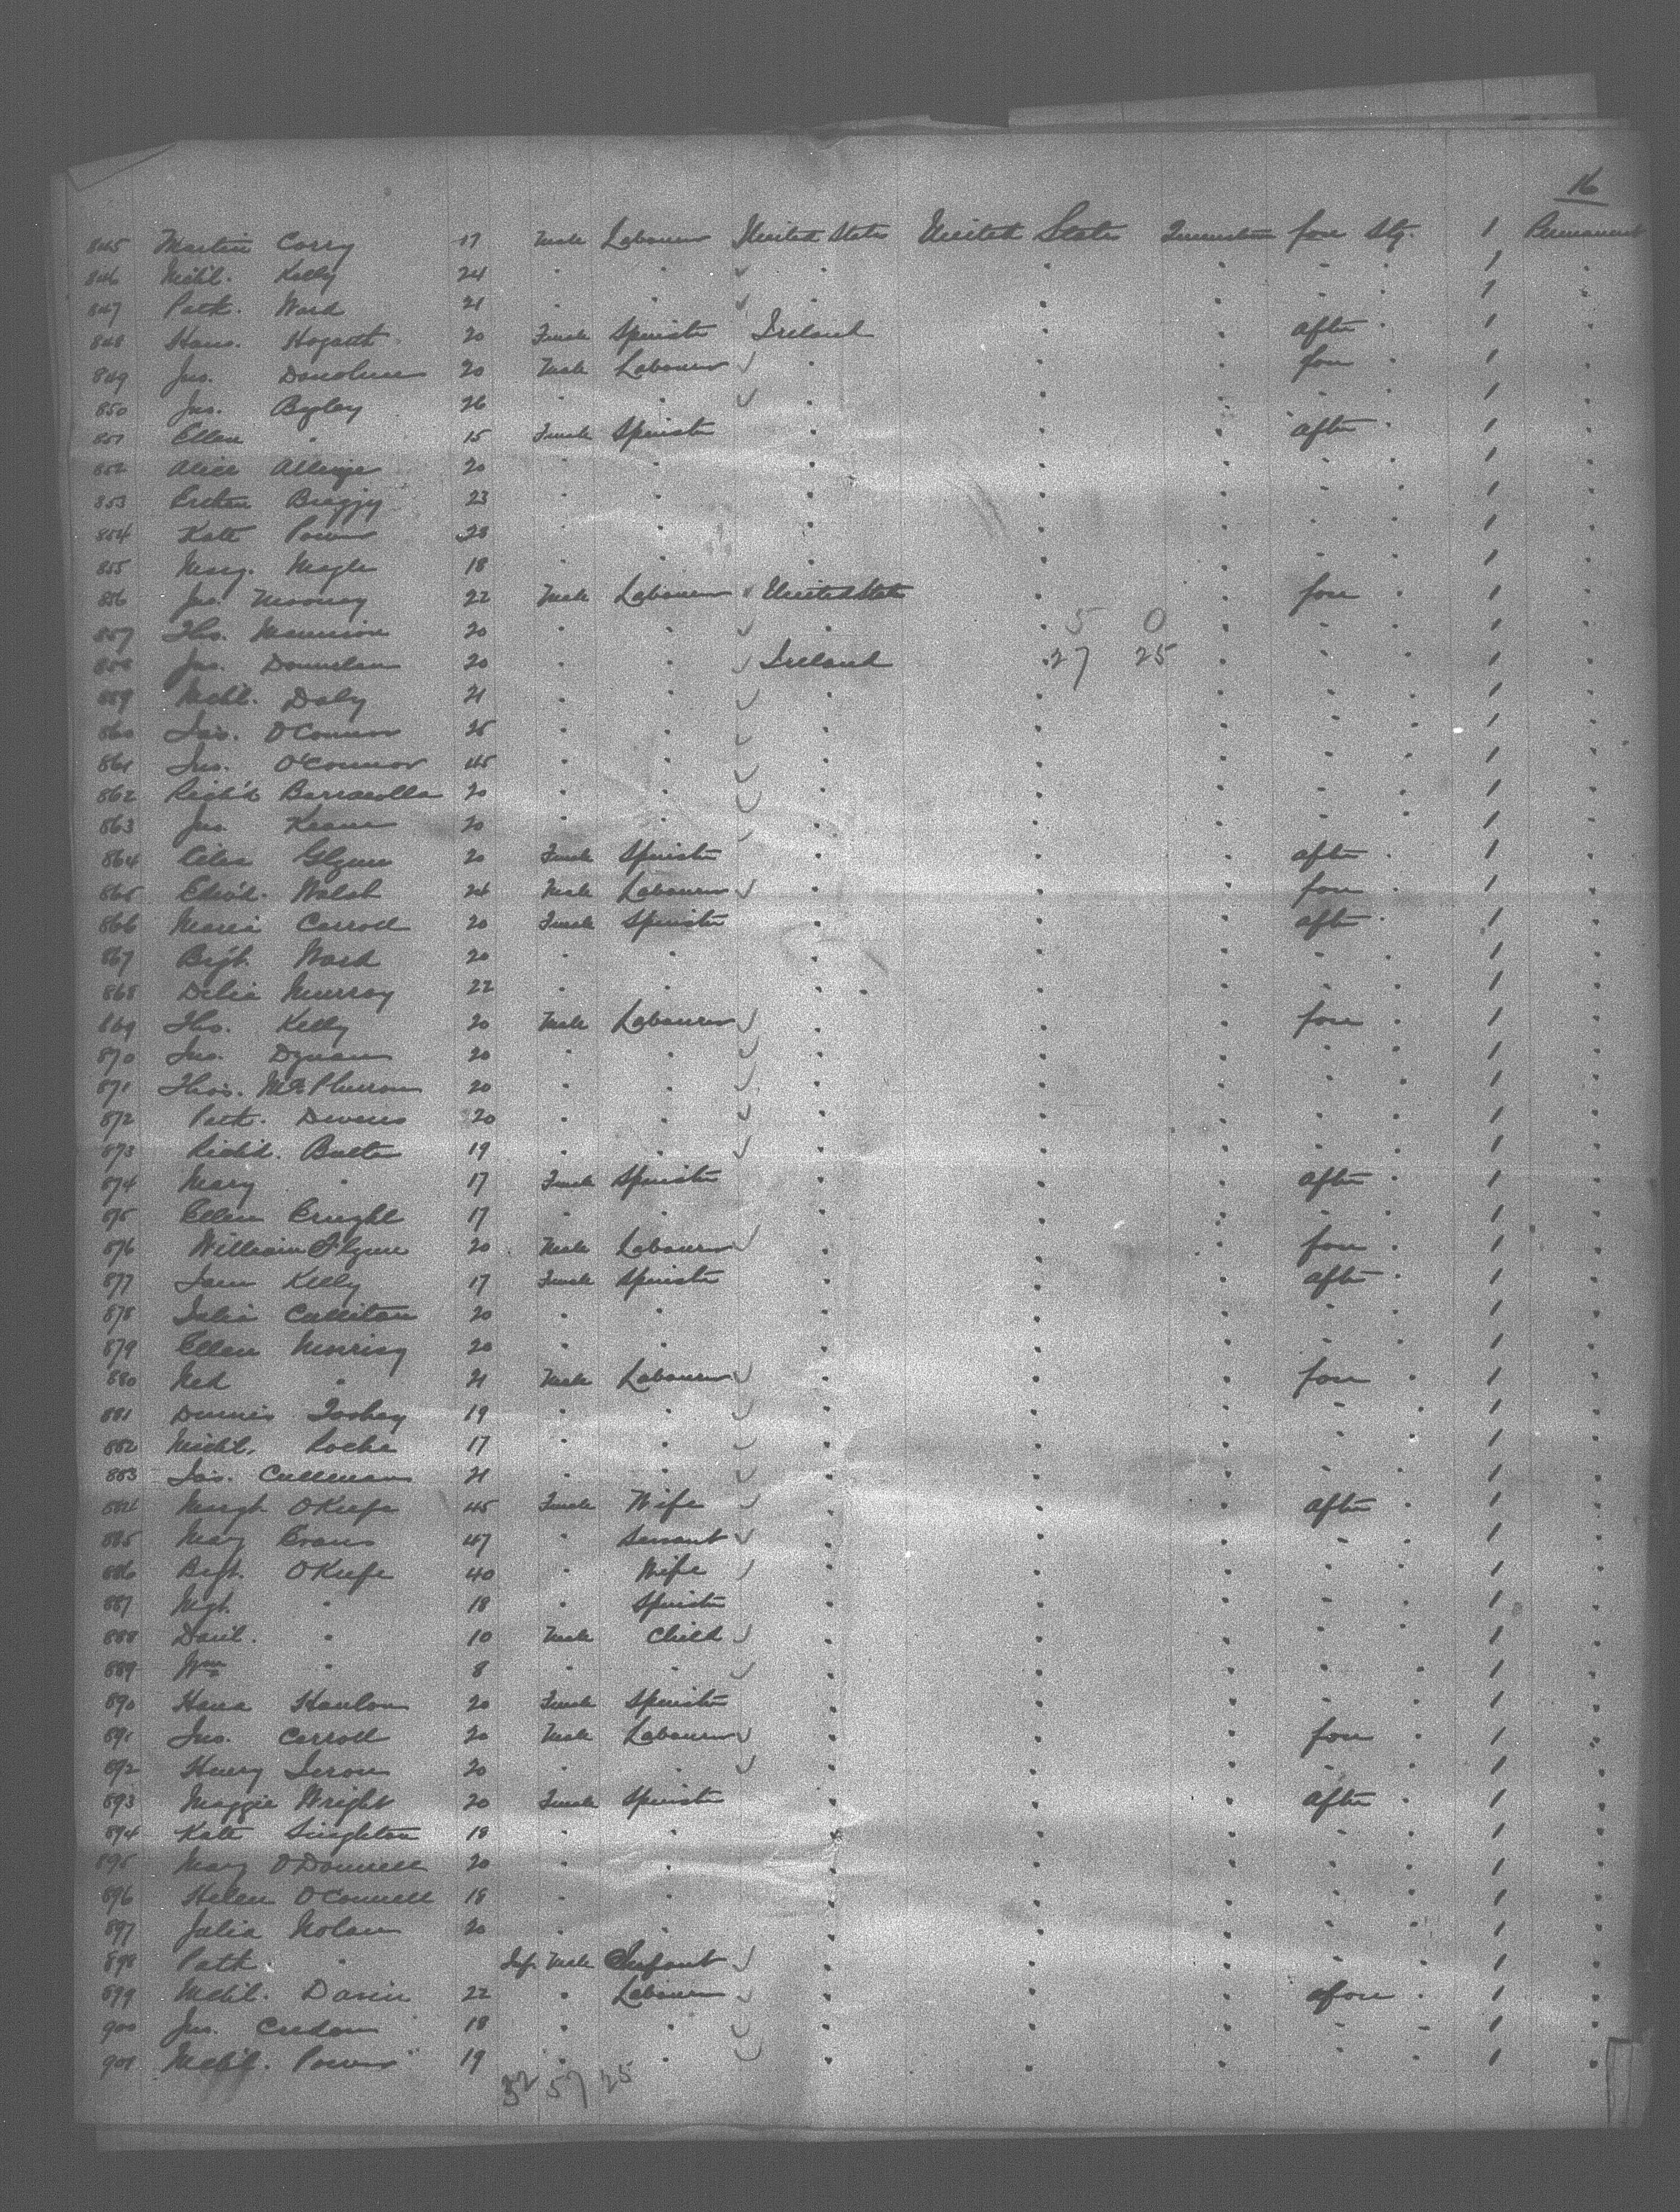 16
845 Martin Corry 17 Male Labourer United States United States Queenstown fore Stg. 1 Permanent
846 Michl. Kelly 24 " " " " " " " 1 "
847 Patk. Ward 21 " " " " " " " 1 "
848 Hogarth 20 Female Spinster Ireland " " after " 1 "
849 Jno. Donohue 20 Male Labourer " " " fore " 1 "
850 Jno. Begley 26 " " " " " " " 1 "
851 Ellen " 15 Female Spinster " " " after " 1 "
852 Alice 20 " " " " " " " 1 "
853 23 " " " " " " " 1 "
854 Kate Power 23 " " " " " " " 1 "
855 18 " " " " " " " 1 "
856 Jno. Mooney 22 Male Labourer United States " " fore " 1 "
857 Tho. Mannion 20 " " " " 5 0 " " " 1 "
858 Jno. Donnelan 20 " " Ireland " 27 25 " " " 1 "
859 Michl. Daly 21 " " " " " " " 1 "
860 Jas. O'Connor 25 " " " " " " " 1 "
861 Jno. O'Connor 45 " " " " " " " 1 "
862 Rich'd 20 " " " " " " " 1 "
863 Jno. Keane 20 " " " " " " " 1 "
864 Celia Glynn 20 Female Spinster " " " after " 1 "
865 Walsh 24 Male Labourer " " " fore " 1 "
866 Maria Carroll 20 Female Spinster " " " after " 1 "
867 Bigt. Ward 20 " " " " " " " 1 "
868 Delia Murray 22 " " " " " " " 1 "
869 Tho. Kelly 20 Male Labourer " " " fore " 1 "
870 Jno. 20 " " " " " " " 1 "
871 Thos. 20 " " " " " " " 1 "
872 Patk. 20 " " " " " " " 1 "
873 Richd. Butler 19 " " " " " " " 1 "
874 Mary " 17 Female Spinster " " " after " 1 "
875 Ellen 17 " " " " " " " 1 "
876 William Flynn 20 Male Labourer " " " fore " 1 "
877 Jane Kelly 17 Female Spinster " " " after " 1 "
878 Julia Culliton 20 " " " " " " " 1 "
879 Ellen 20 " " " " " " " 1 "
880 Ned " 21 Male Labourer " " " fore " 1 "
881 Dennis 19 " " " " " " " 1 "
882 Michl. Roche 17 " " " " " " " 1 "
883 Jas. Cullinan 21 " " " " " " " 1 "
884 Margh O'Keefe 45 Female Wife " " " after " 1 "
885 Mary Evans 47 " Servant " " " " " 1 "
886 Bigt. O'Keefe 40 " Wife " " " " " 1 "
887 Mgt. " 18 " Spinster " " " " " 1 "
888 Danl. " 10 Male Child " " " " " 1 "
889 Wm " 8 " " " " " " " 1 "
890 Hana Hanlon 20 Female Spinster " " " " " 1 "
891 Jno. Carroll 20 Male Labourer " " " fore " 1 "
892 Henry 20 " " " " " " " 1 "
893 Maggie Wright 20 Female Spinster " " " after " 1 "
894 Kate Singleton 18 " " " " " " " 1 "
895 Mary O'Donnell 20 " " " " " " " 1 "
896 Helen O'Connell 18 " " " " " " " 1 "
897 Julia Nolan 20 " " " " " " " 1 "
898 Patk. " Inf. Male Infant " " " " " 1 "
899 Michl. 22 " Labourer " " " fore " 1 "
900 Jno. Credon 18 " " " " " " " 1 "
901 Michl. Power 19 " " " " " " " 1 "
32 57 25